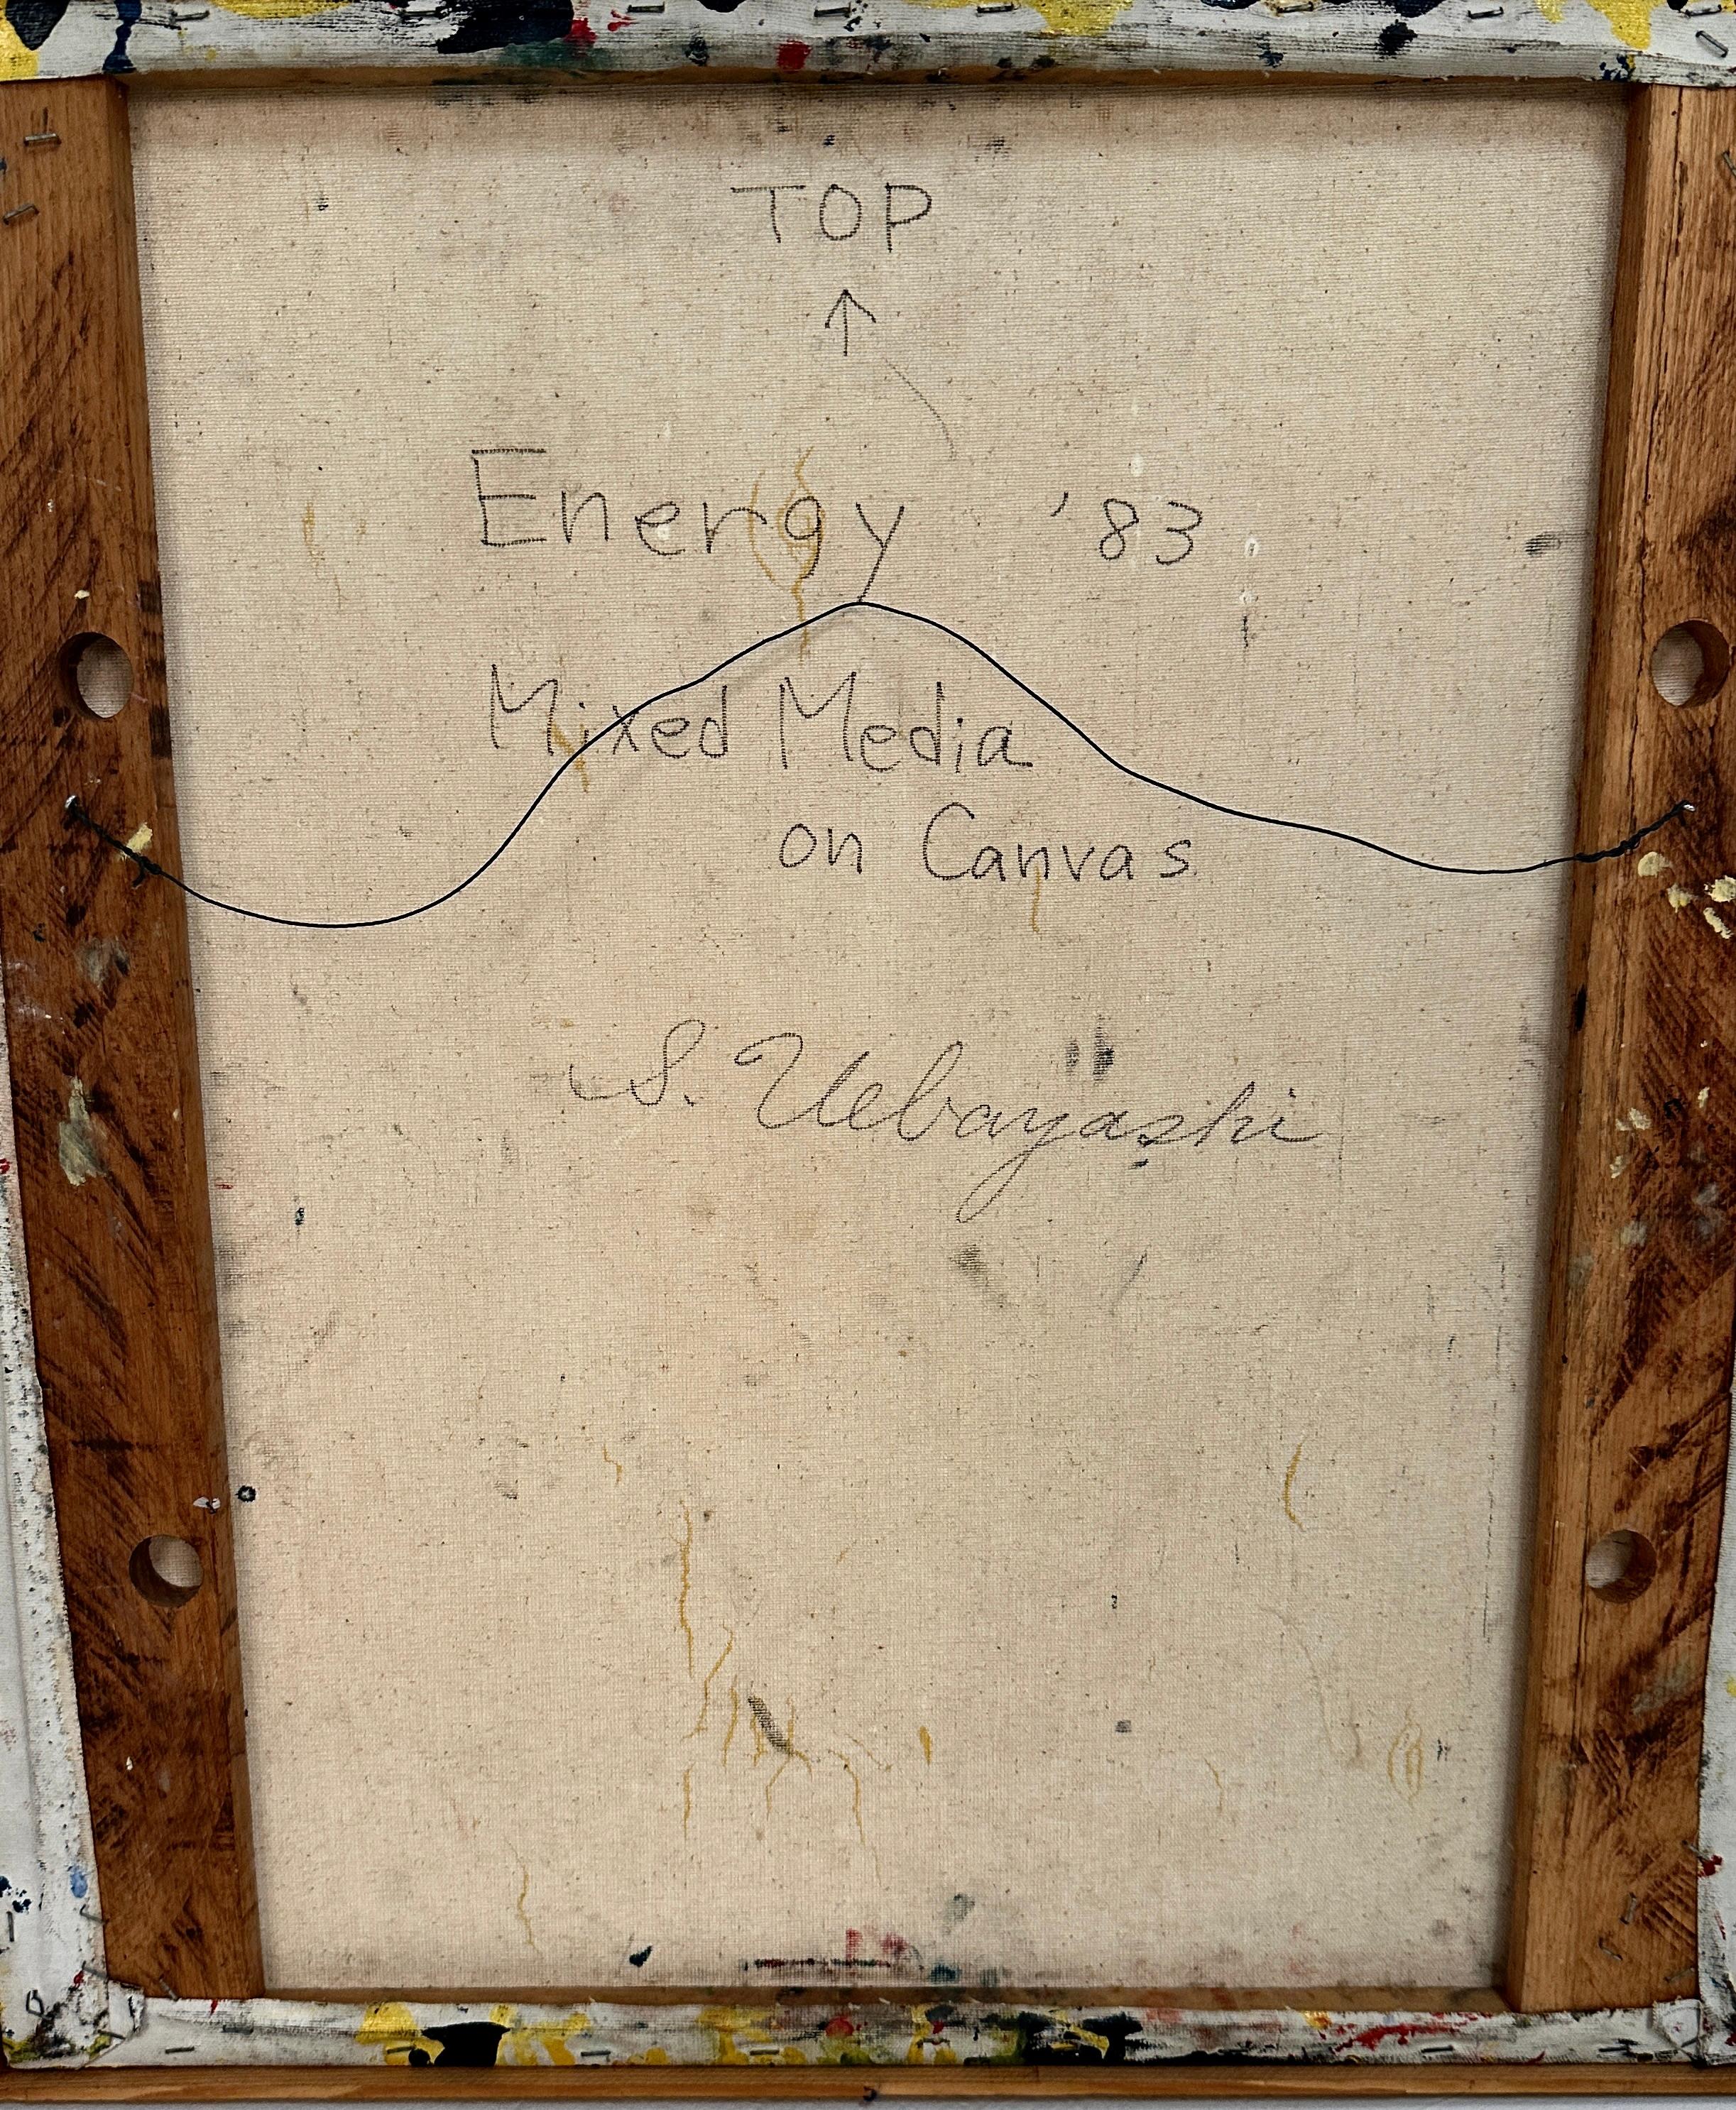 TOP
↑
Energy '83
Mixed Media
on Canvas
S. Uebayashi